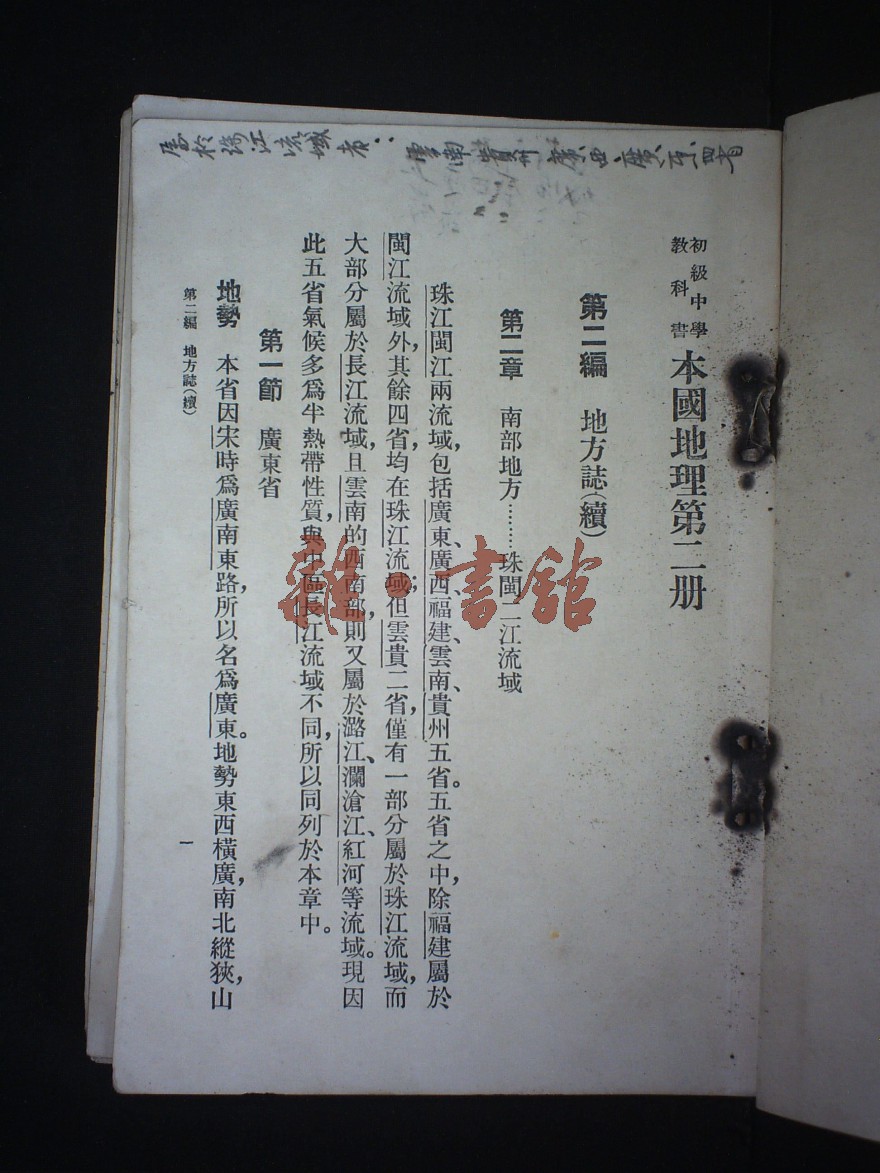 屬於珠江流域者：雲南貴州廣西廣東四省
初級中學
教科書
本國地理第二册
第二編　地方誌(續)
第二章　南部地方………珠閩二江流域
珠江閩江兩流域，包括廣東、廣西、福建、雲南、貴州五省。五省之中，除福建屬於
閩江流域外，其餘四省，均在珠江流域；但雲貴二省，僅有一部分屬於珠江流域，而
大部分屬於長江流域，且雲南的西南部，則又屬於潞江、瀾滄江、紅河等流域。現因
此五省氣候多爲半熱帶性質，與中區長江流域不同，所以同列於本章中。
第一節　廣東省
地勢　本省因宋時爲廣南東路，所以名爲廣東。地勢東西橫廣，南北縱狹，山
第二編　地方誌(續)
一
雜·書館